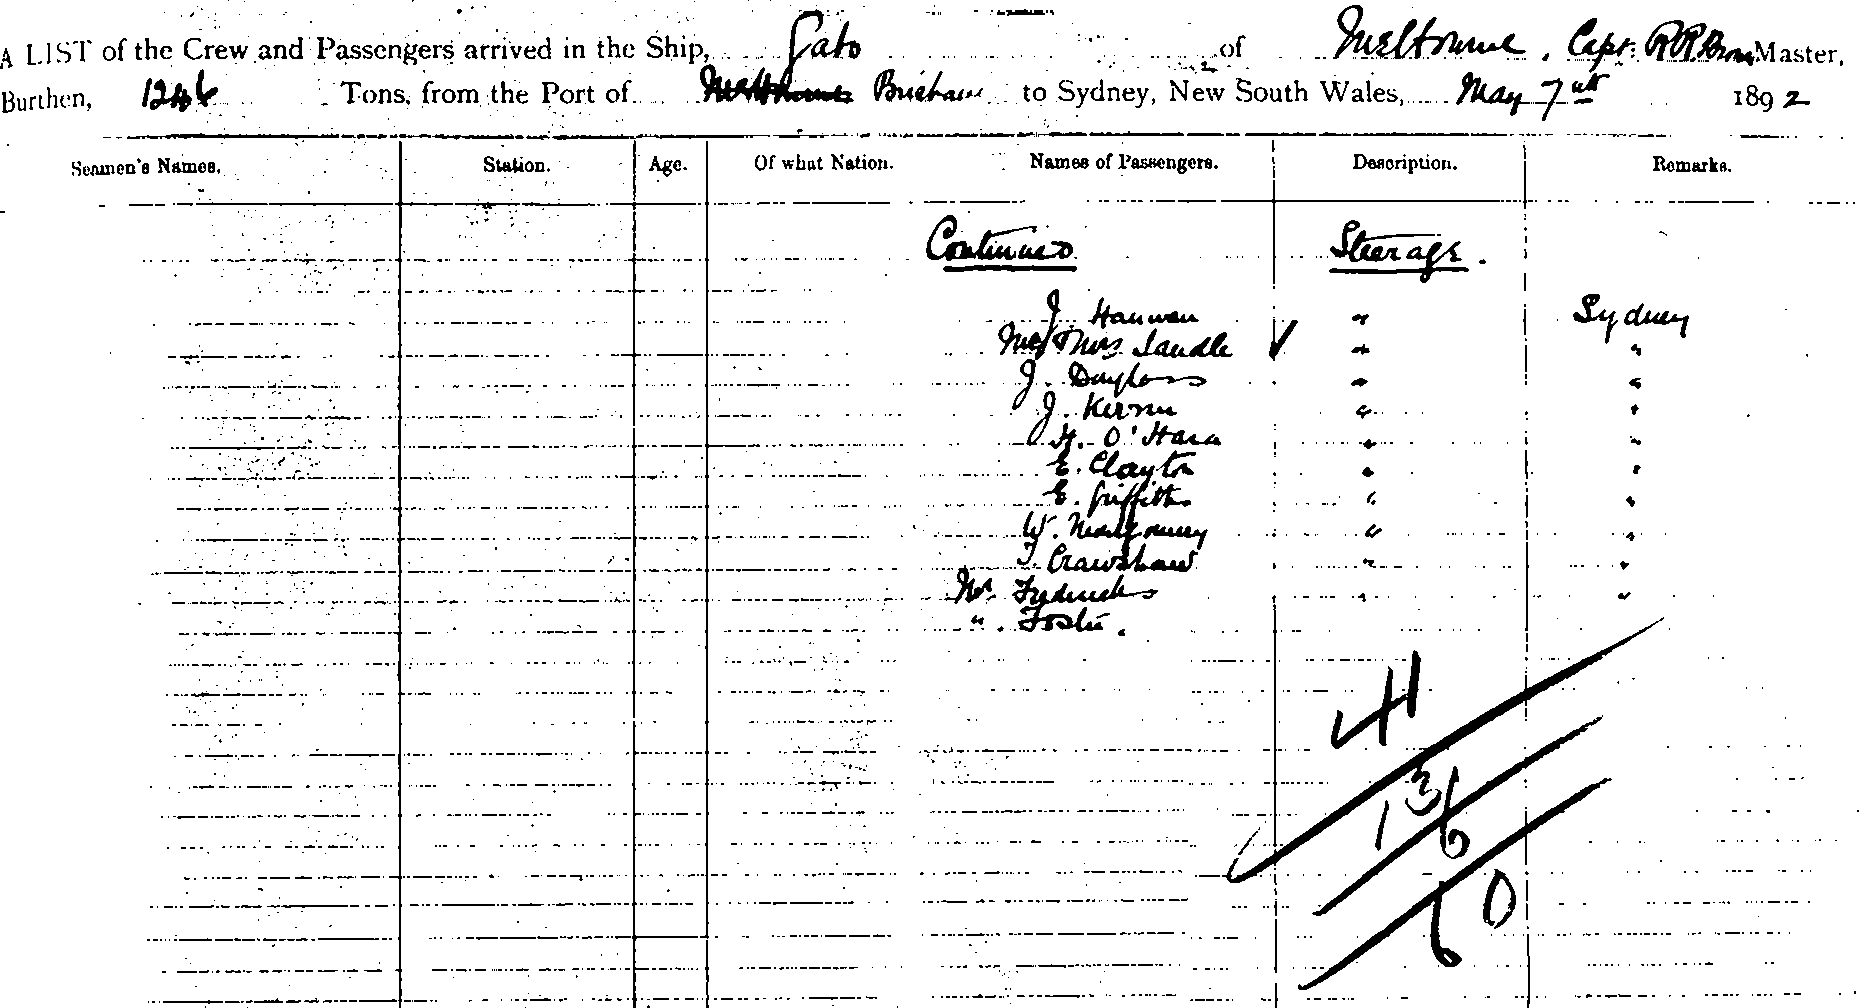 A LIST of the Crew and Passengers arrived in the Ship, Gabo of Melbourne, Capt. R R Master,
Burthen, 1246 Tons, from the Port of Brisbane to Sydney, New South Wales, May 7th 1892
Seamen's Names. Station. Age. Of what Nation. Names of Passengers. Description. Remarks.
Continued Steerage.
J Hannan " Sydney
Mr & Mrs Landle ✓ " "
J. " "
J. " "
H. O'Hara " "
E. Clayton " "
E. Griffiths " "
W. Montgomery " "
T Crawshaw " "
Mr. Fredericks " "
". Foster.
41
13/6
60